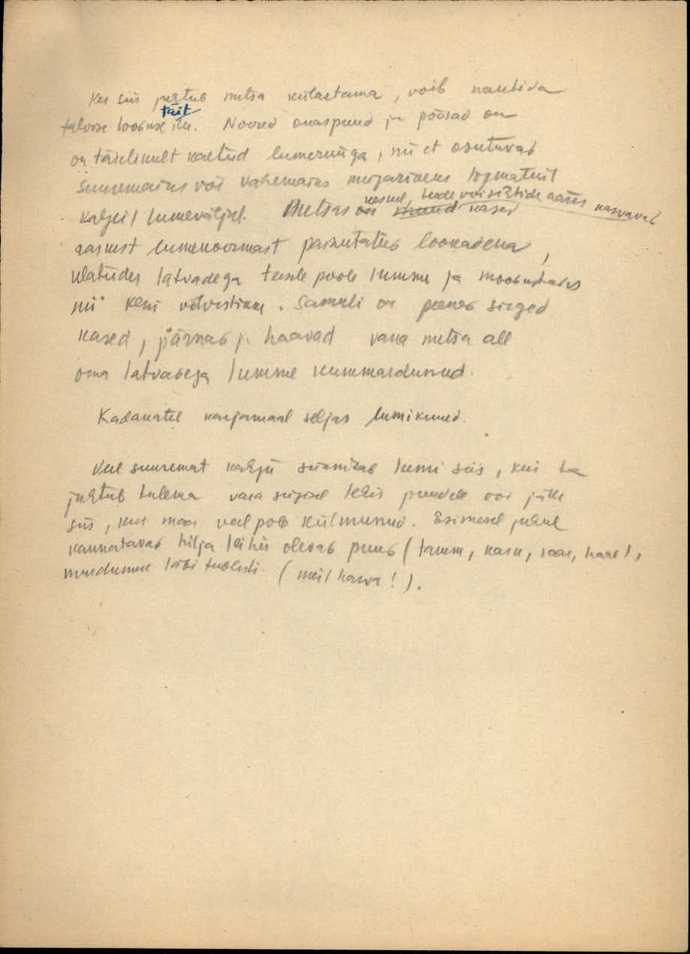 Kes siis juhtub metsa külastama, võib nautida
täit
talvise looduse ilu. Noored okaspuud ja põõsad on
on täielikult kaetud lumerüüga, nii et osutuvad
suuremaiks või vähemaiks
lumeväljal. Metsas on kased
kased, teede või sihtide ääres kasvavad
raskest lumekoormast painutatud lookadena,
ulatudes latvadega teisele poole lumme ja moodustades
nii võlvistiku. Samuti on peened sirged
kased, pärnad ja haavad vana metsa all
oma latvadega lumme kummardunud.
Kadakatel karjamaal seljas lumikuued.
Veel suuremat kahju sünnitab lumi siis, kui ta
juhtub tulema vara sügisel lehis puudele või jälle
siis, kus maa veel pole külmunud. Esimesel juhul
kannatavad hilja lehis olevad puud (tamm, kask, saar, haab),
murdumise läbi tublisti. (meil kava!).